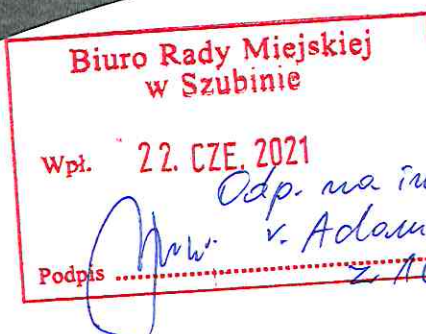 Biuro Rady Miejskiej
w Szubinie
Wpł. 22. CZE. 2021
Odp. na in
r. Adam
Podpis
z 16